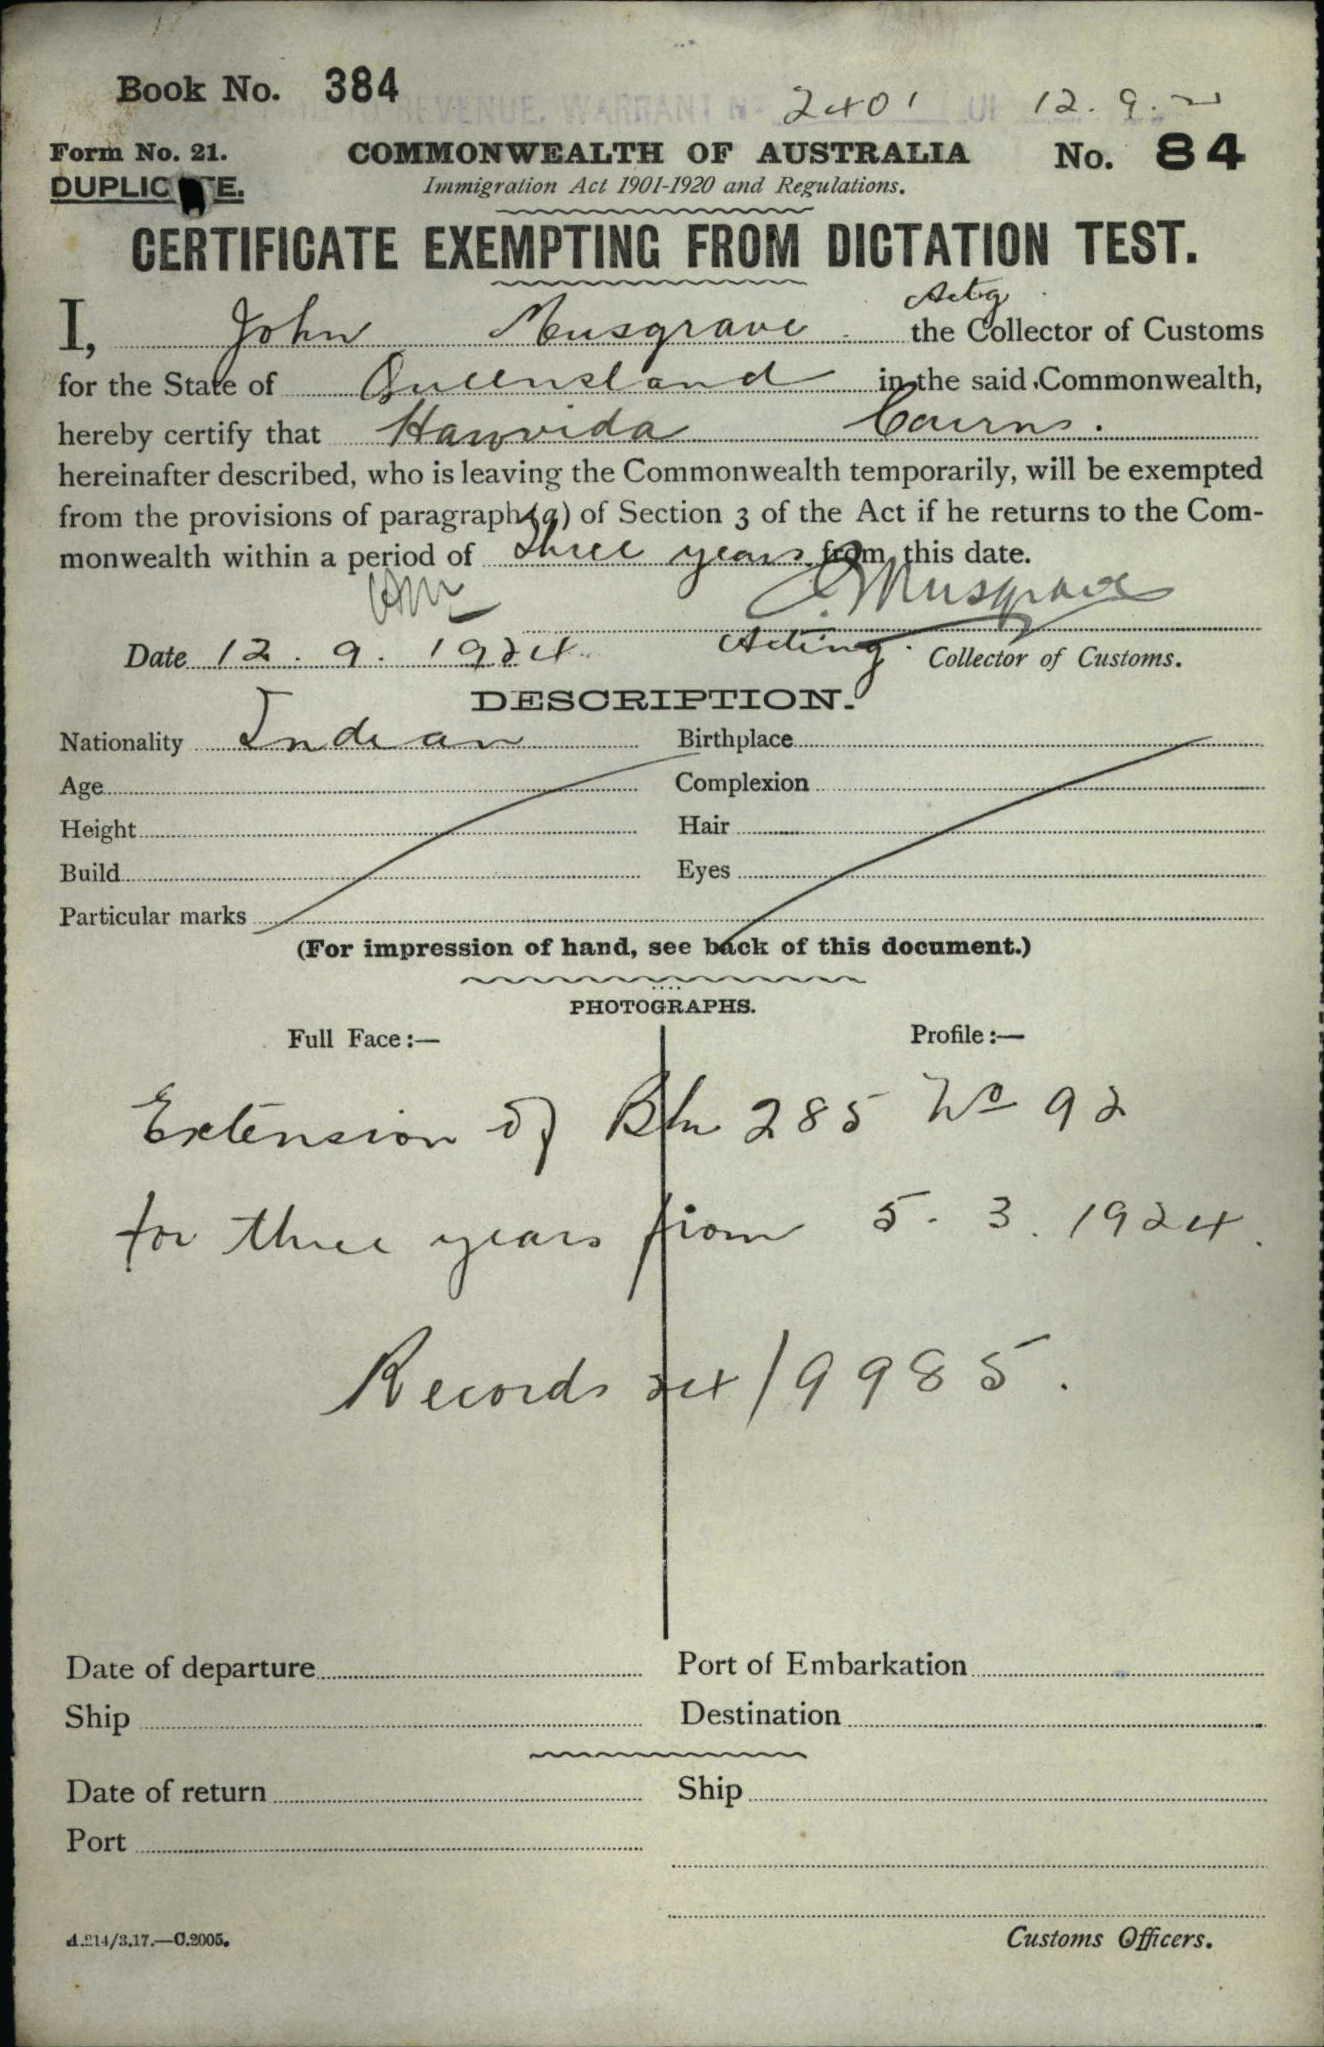 Book No. 384
REVENUE. WARRANT No 2401 OF 12.9.
Form No. 21.
COMMONWEALTH OF AUSTRALIA
No. 84
DUPLIC TE.
Immigration Act 1901-1920 and Regulations.
CERTIFICATE EXEMPTING FROM DICTATION TEST.
Actg
I, John Musgrave the Collector of Customs
for the State of Queensland in the said Commonwealth,
hereby certify that Harvida Cairns.
hereinafter described, who is leaving the Commonwealth temporarily, will be exempted
from the provisions of paragraph (a) of Section 3 of the Act if he returns to the Com-
monwealth within a period of three years from this date.
J. Musgrave
Date 12. 9. 1924 Acting Collector of Customs.
DESCRIPTION.
Nationality Indian Birthplace
Age Complexion
Height Hair
Build Eyes
Particular marks
(For impression of hand, see back of this document.)
PHOTOGRAPHS.
Full Face:— Profile:—
Extension of Bk 285 No 92
for three years from 5. 3. 1924.
Records 24/9985.
Date of departure Port of Embarkation
Ship Destination
Date of return Ship
Port
A.214/3.17.—C.2005. Customs Officers.